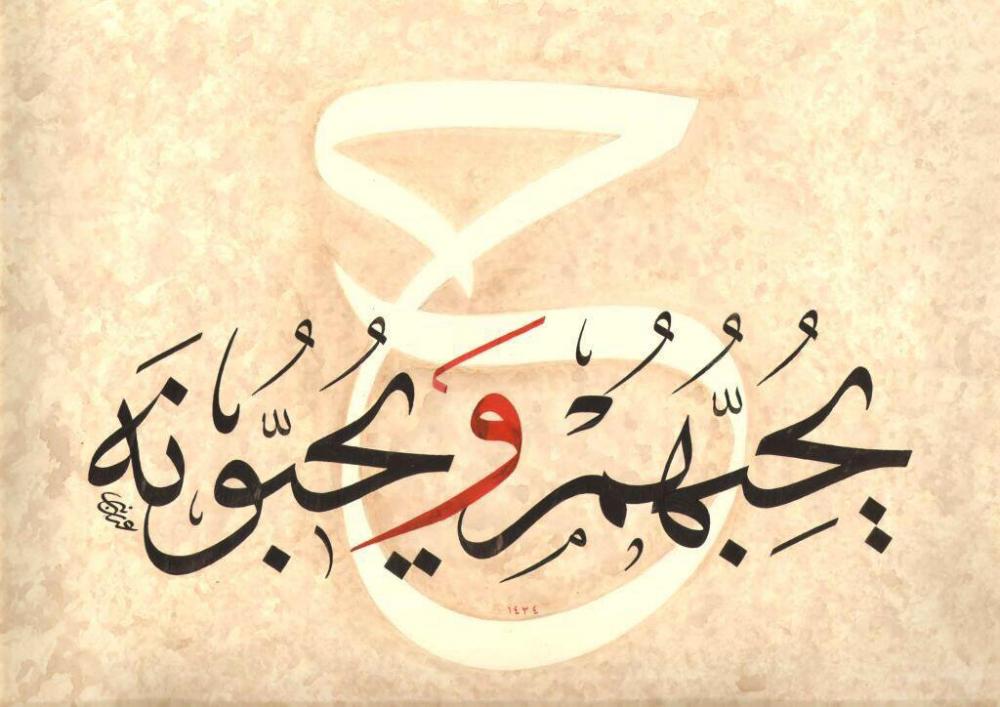 يُحِبُّهُمْ وَيُحِبُّونَهُ
١٤٣٤